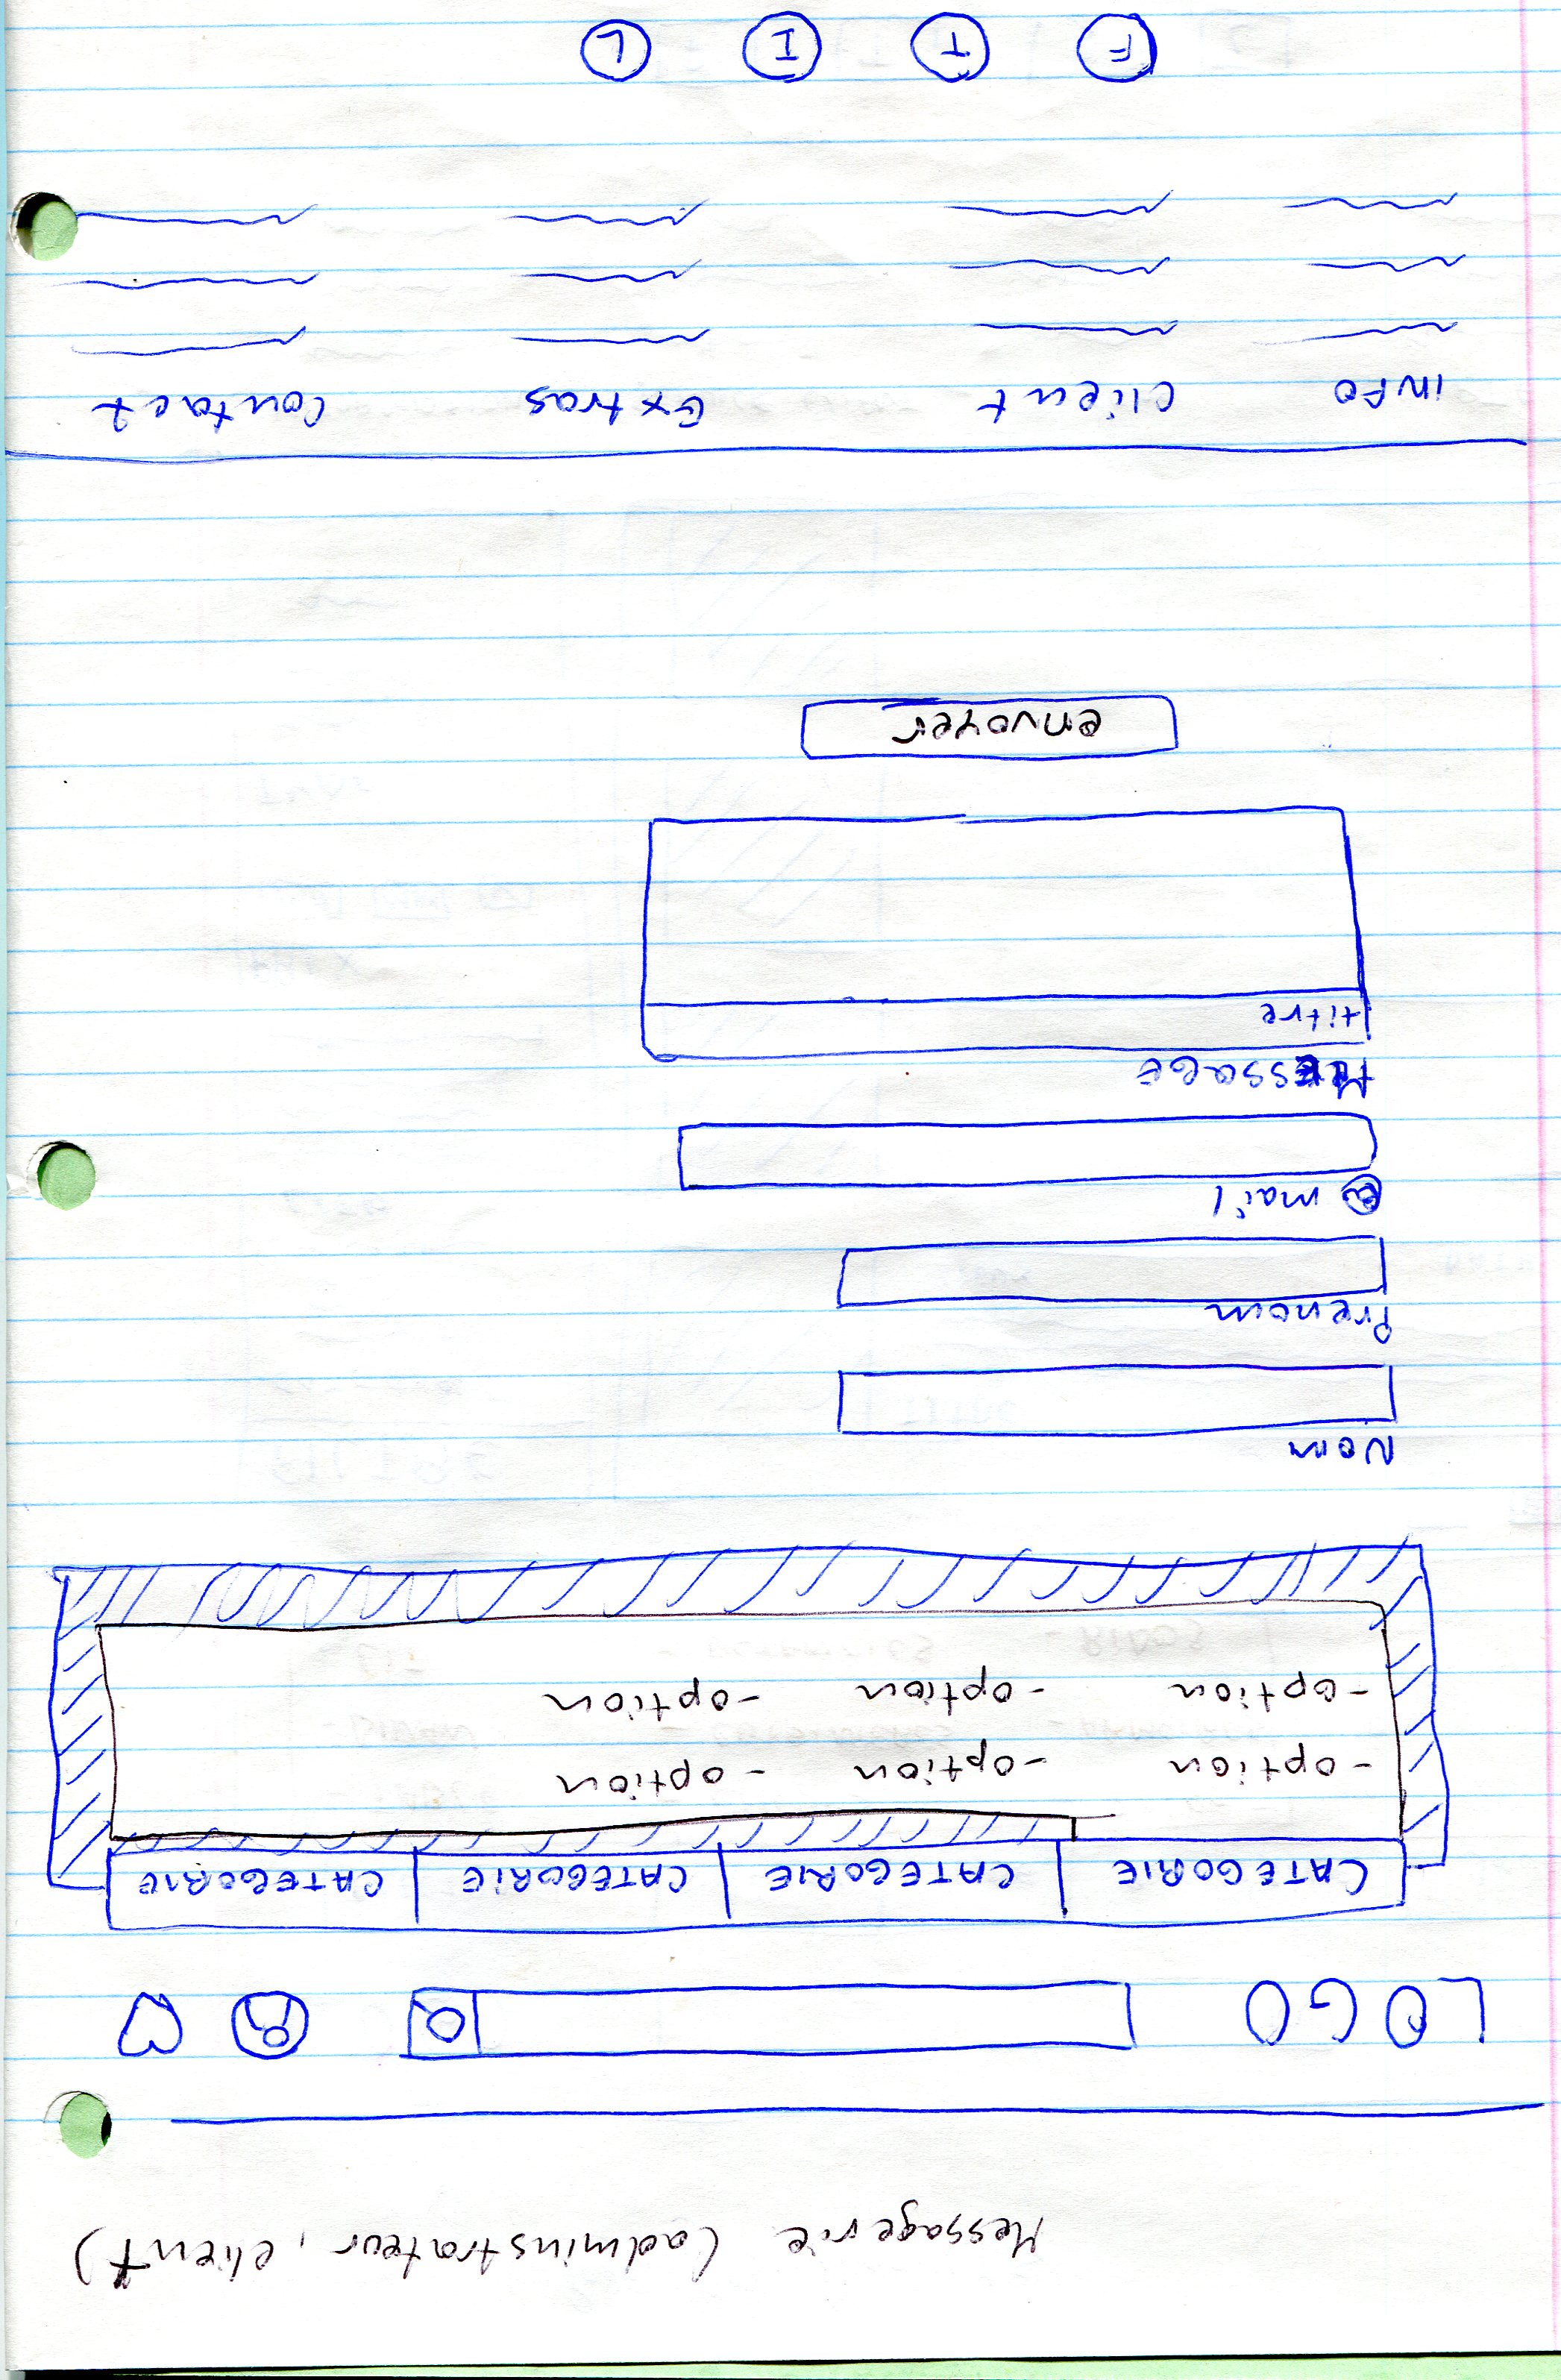 Messagerie (adminstrateur, client)
LOGO
CATEGORIE CATEGORIE CATEGORIE CATEGORIE
-option -option -option
-option -option -option
Nom
Prenom
@ mail
MESSAGE
titre
envoyer
INFO Client Extras Contact
F T I L